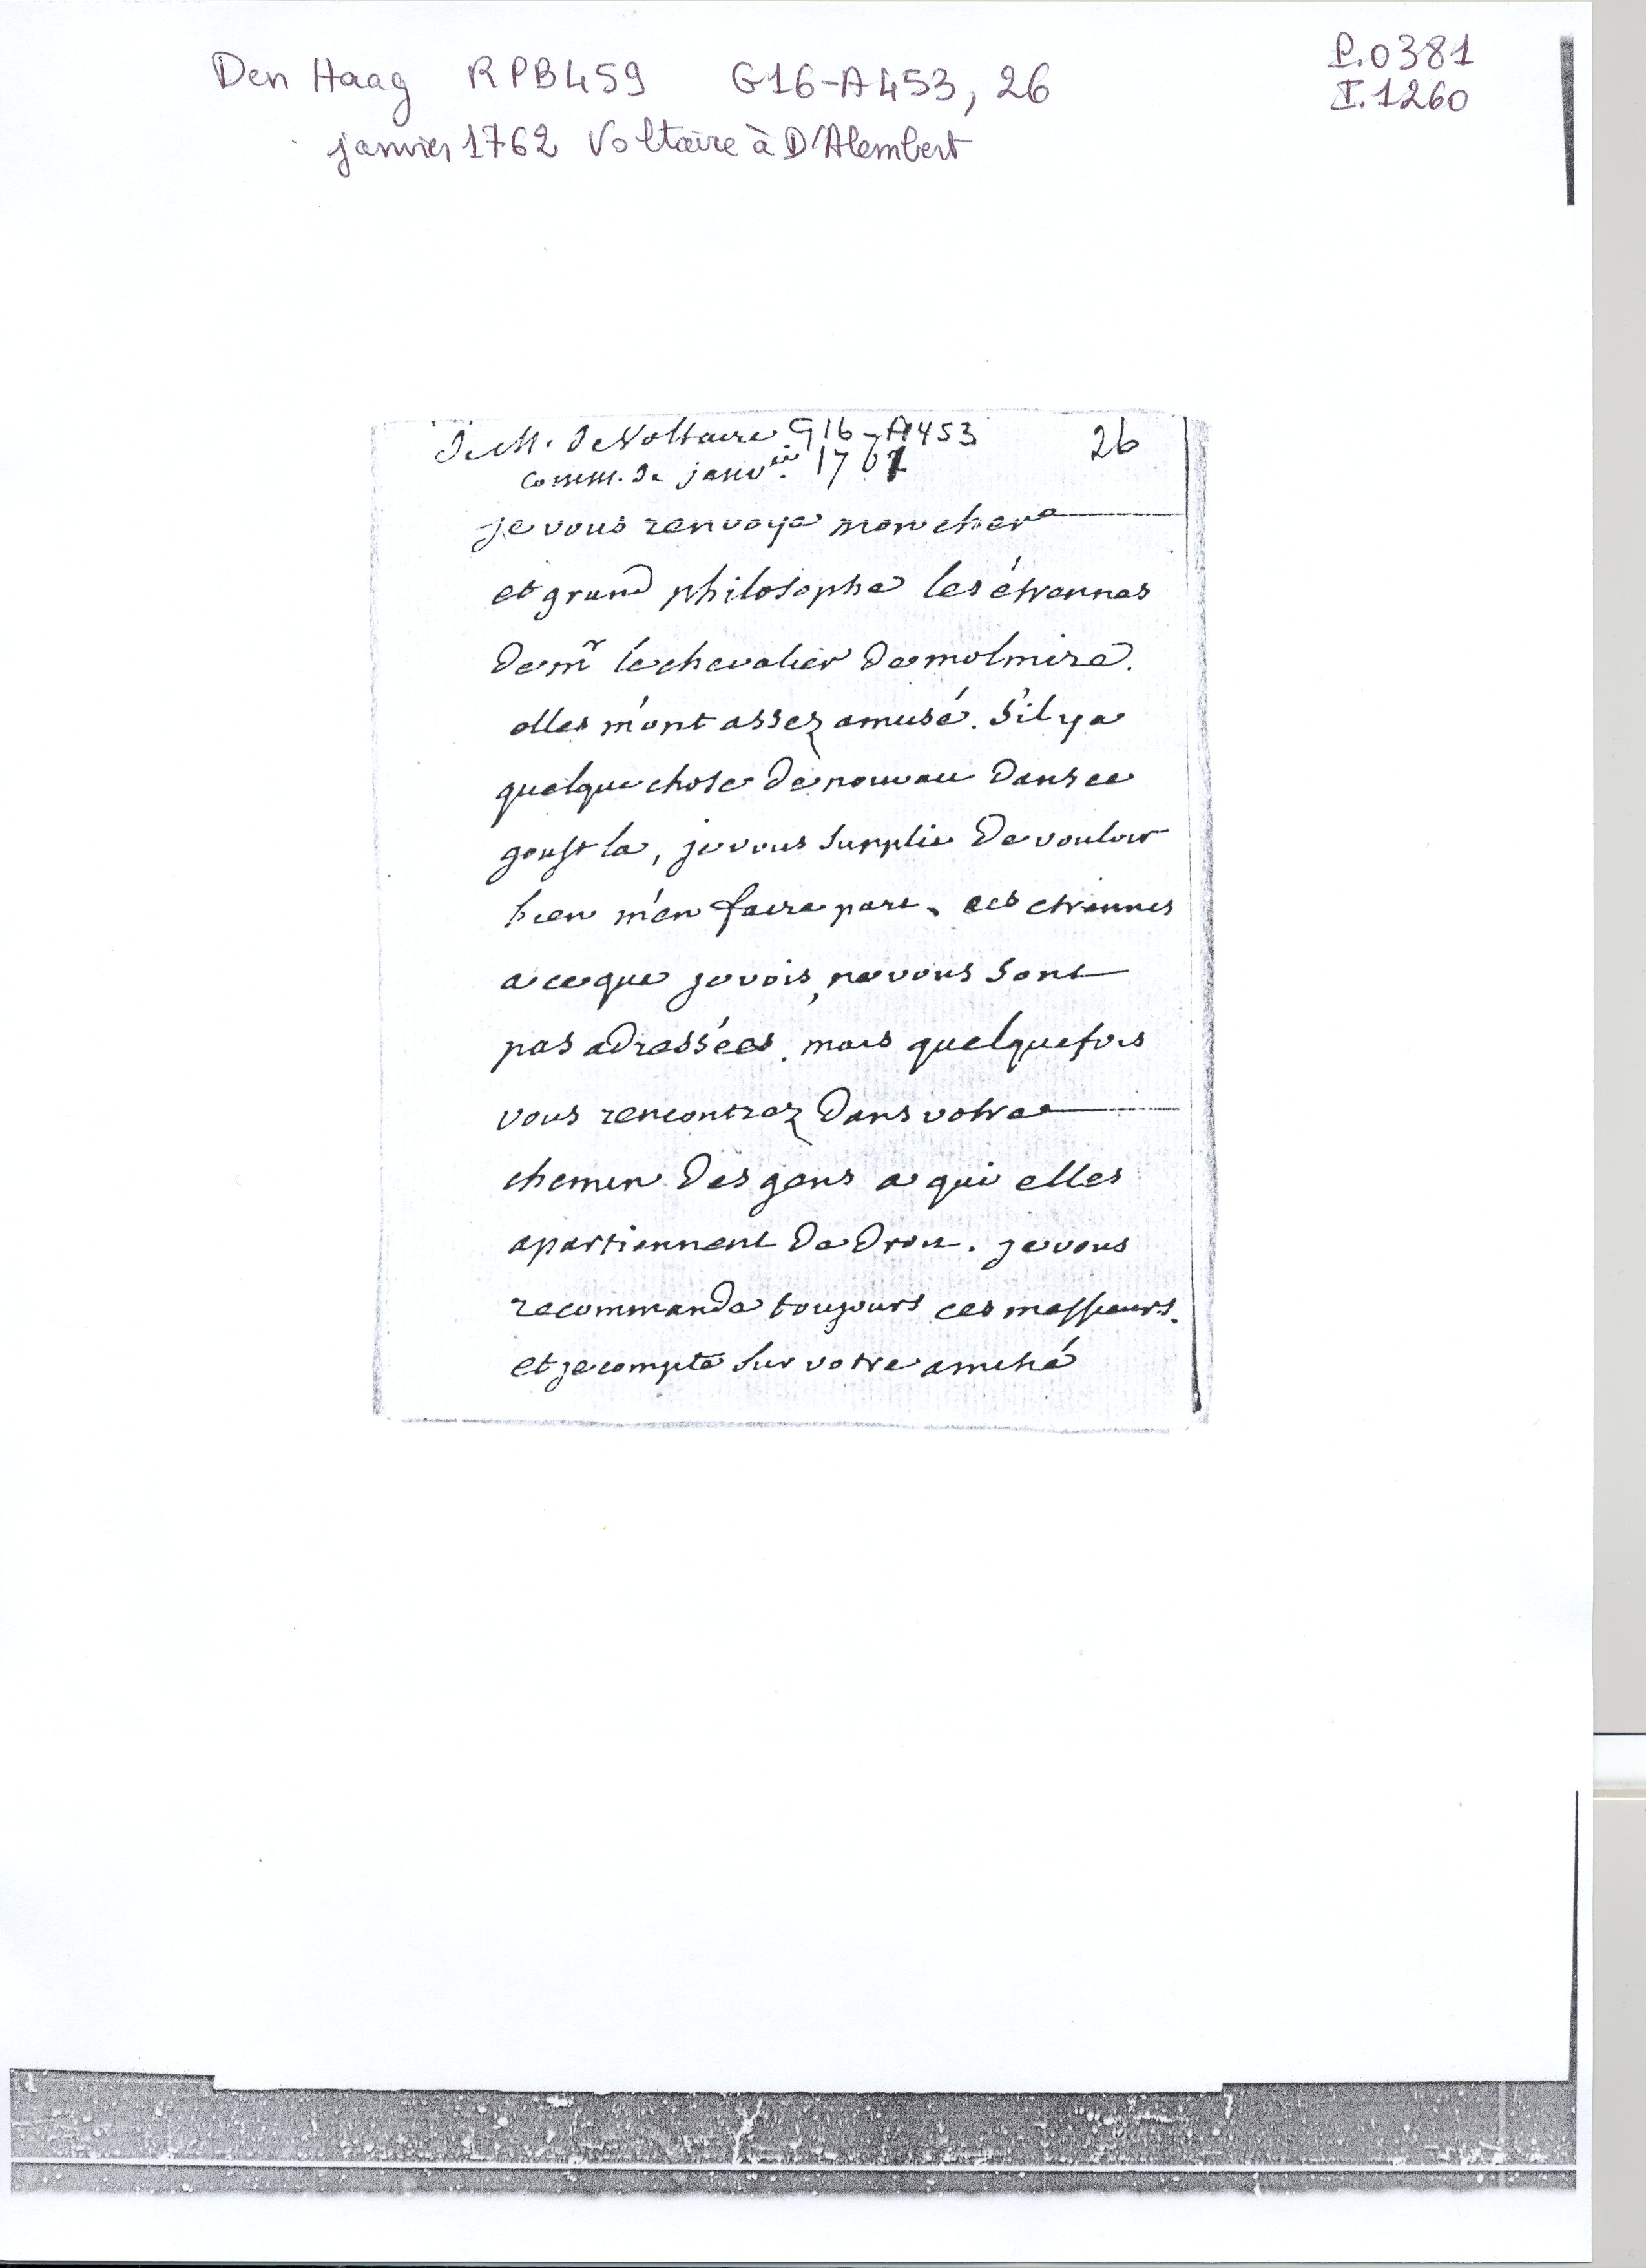 Den Haag RPB459 G16-A453, 26
P.0381
I.1260
janvier 1762 Voltaire à D'Alembert
de M. de Voltaire G16-A453 26
comm. de janv.er 1762
je vous renvoye mon cher
et grand philosophe les étrennes
de mr le chevalier de molmire.
elles m'ont assez amusé. s'il y a
quelque chose de nouvau dans ce
goust la, je vous supplie de vouloir
bien m'en faire part. ces etrennes
a ce que je vois, ne vous sont
pas adressées. mais quelquefois
vous rencontrez dans votre
chemin des gens a qui elles
apartiennent de droit. je vous
recommande toujours ces messieurs.
et je compte sur votre amitié